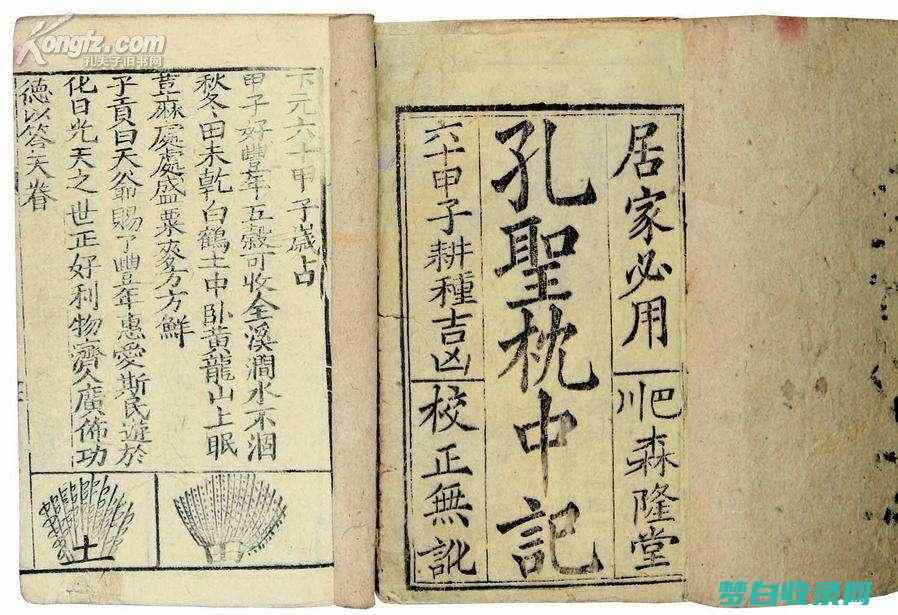 Kongfz.com
孔夫子旧书网
居家必用
巴川森隆堂
孔聖枕中記
六十甲子耕種吉凶
校正無訛
下元六十甲子歲占
甲子好豐年五穀可收全溪澗水不涸
秋冬田未乾白鶴土中卧黃龍山上眠
荳麻處處盛粟麥方方鮮
子貢曰天賜了豐年惠愛斯民遊於
化日光天之世正好利物濟人廣佈功
德以答天眷
土
梦白收录网